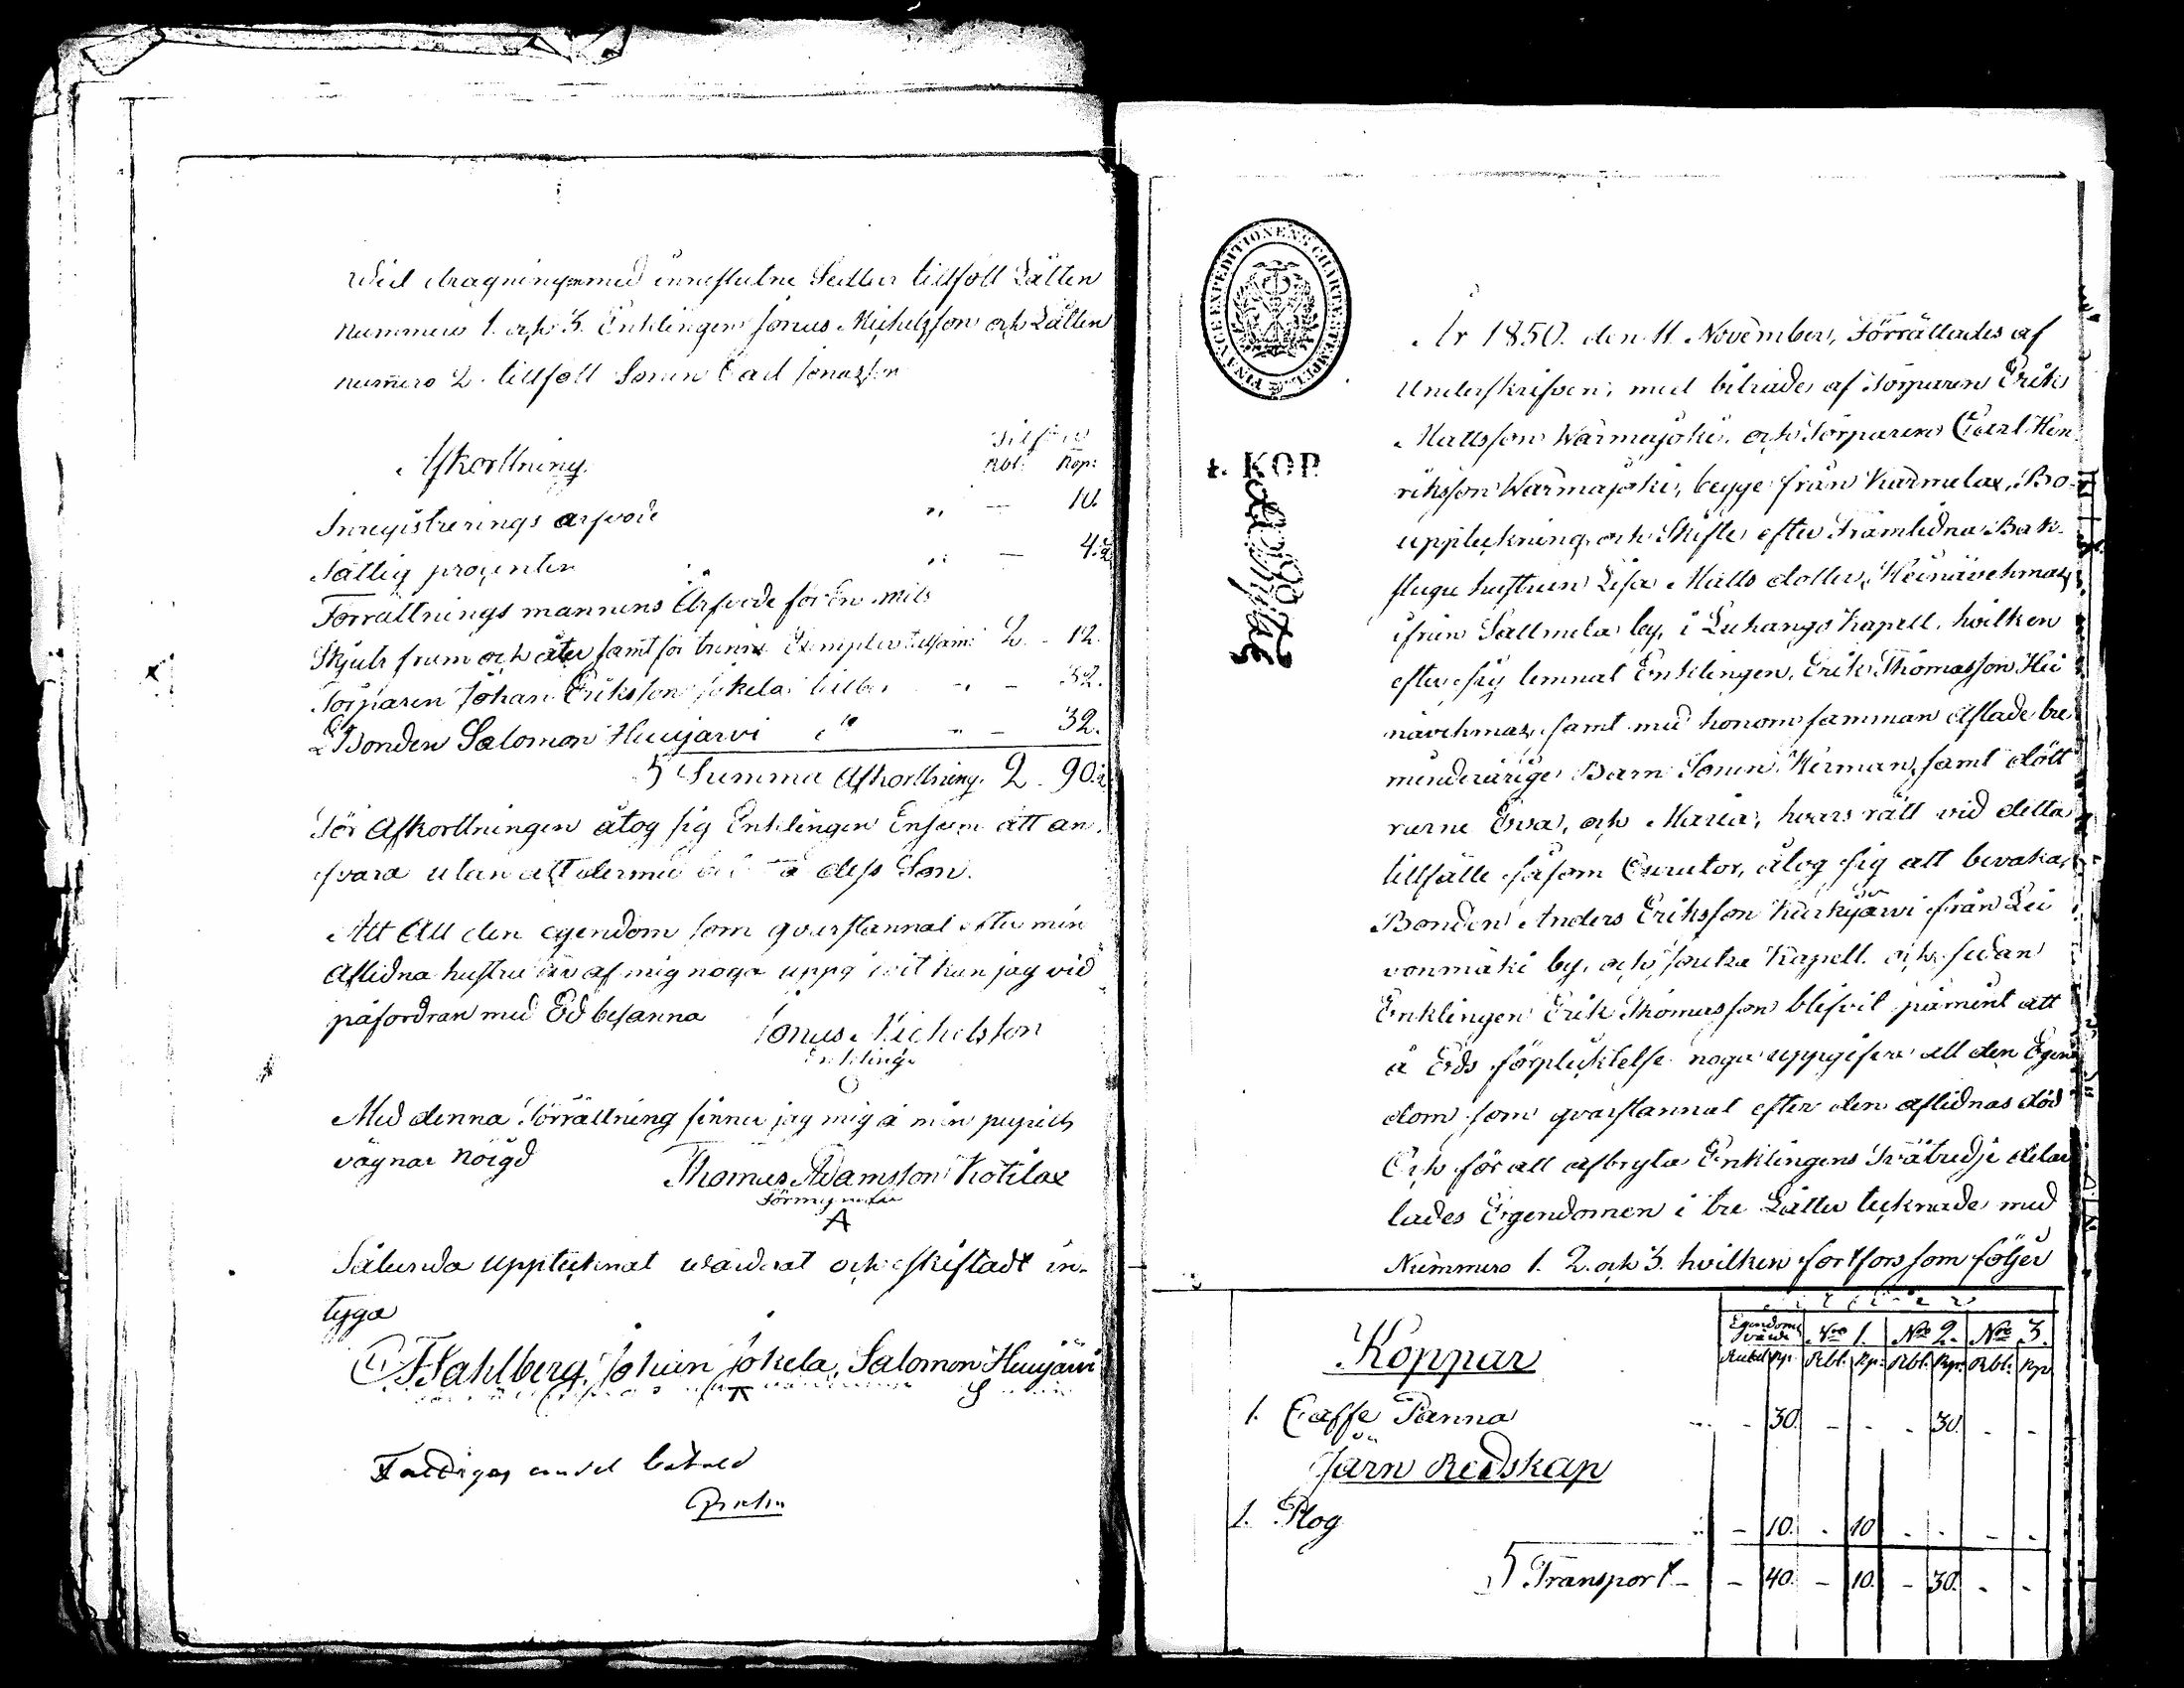 Wid dragningen med inneslutne Sedler tillföll Lätten
Nummero 1. och 3. Enklingen Jonas Michelsson och Lätten
nummero 2. tillföll Sonen Carl Jonasson
Afkorttning.
Silfver
Rbl: Kop:
Inregistrerings arfvode „ — 10.
Fattig procenten „ — 4.½
Förrättnings mannens Arfvode för En mils
Skjuts fram och åter samt för trenne Exemplar tillsam: 2. - 12.
Torparen Johan Eriksson Jokela „ - 32.
Bonden Salomon Huujärvi do „ - 32.
Summa Afkorttning. 2. 90.½
För Afkorttningen åtog sig Enklingen Ensam att an-
svara utan att dermed dess Son.
Att All den egendom som qvarstannat efter min
Aflidna hustru är af mig noga uppgifvit kan jag vid
påfordran med Ed besanna
Jonas Michelsson
Enkling
Med denna Förrättning finner jag mig å min pupills
vägnar nöigd
Thomas Adamsson Kotilax
Förmyndare
Sålunda upptecknat wärderat och skiftadt in-
tyga
Dahlberg. Johan Jokela, Salomon Huujärvi
Fattigas andel betald
FINANCE EXPEDITIONENS CHARTÆ STEMPEL
KOP.
År 1850. den 11 November, Förrättades af
Underskrifven, med biträde af Torparen Erik
Mattsson Warmajoki, och Torparen Carl Hen-
riksson Warmajoki, begge från Karmelax, Bo-
uppteckning, och Skifte efter Framlidna Bak-
stugu hustrun Lisa Matts dotter, Heinävehmas
ifrån Sallmela by, i Luhango Kapell. hvilken
efter sig lemnat Enklingen, Erik Thomasson Hei
nävehmas, samt med honom samman Aflade tre
minderårige Barn Sonen Herman, samt dött
rarne Ewa, och Maria, hvars rätt vid detta
tillfälle såsom Curator, åtog sig att bevaka,
Bonden Anders Eriksson Kurkijärvi från Lei
vonmäki by, och Joutsa Kapell. och sedan
Enklingen Erik Thomasson blifvit påmint att
å Eds förpliktelse noga uppgifva all den Egen
dom som qvarstannat efter den aflidnas död
Och för att afbryta Enklingens Tvåtredje delar
lades Egendomen i tre Lätter tecknade med
Nummero 1. 2. och 3. hvilken fortfors som följer
Egendoms värde Nro 1. Nro 2. Nro 3.
Rubel Kp. Rbl: Kp: Rbl: Kp: Rbl: Kp
Koppar
1. Caffe Panna - 30. - - - 30. - -
Järn Redskap
1. Plog - 10. - 10 - - - -
Transport - - 40. - 10. - 30. - -